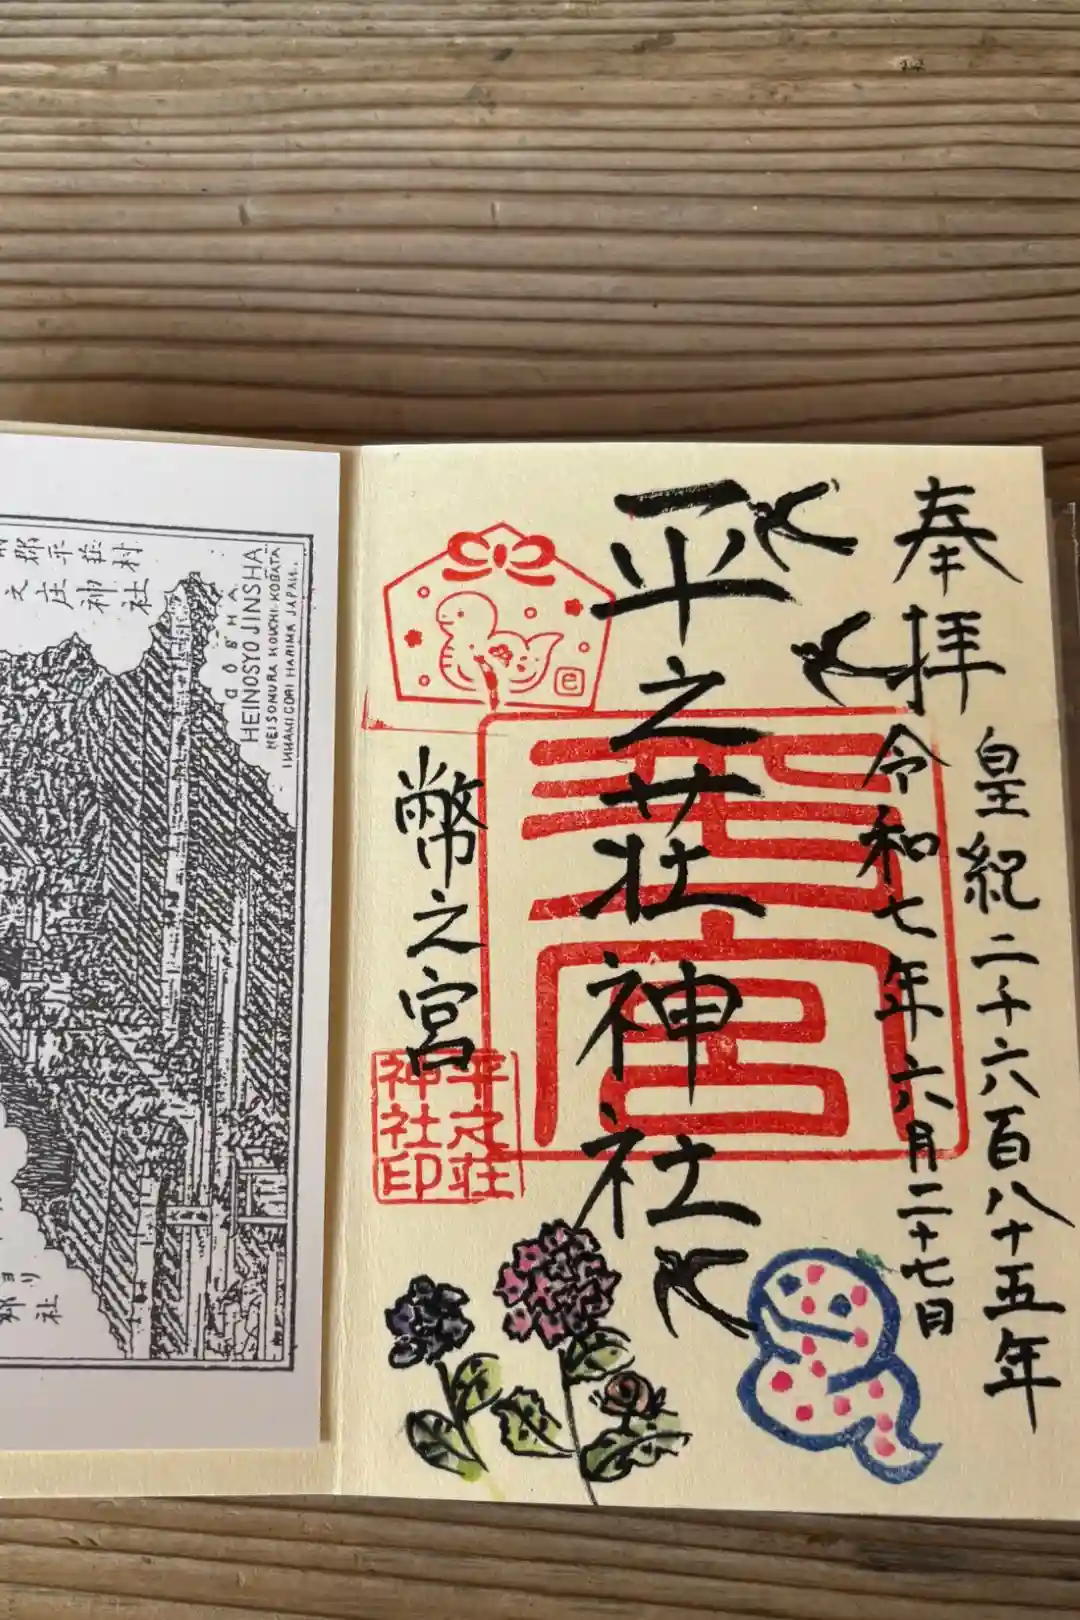 奉拝
皇紀二千六百八十五年
令和七年六月二十七日
平之荘神社
幣之宮
平之荘
神社印
e
村社
神
庄
文
HEINOSYO JINSHA
HEISOMURA KOUCHI KOBATA
INNAMIGORI HARIMA JAPAN.
ヨリ
社